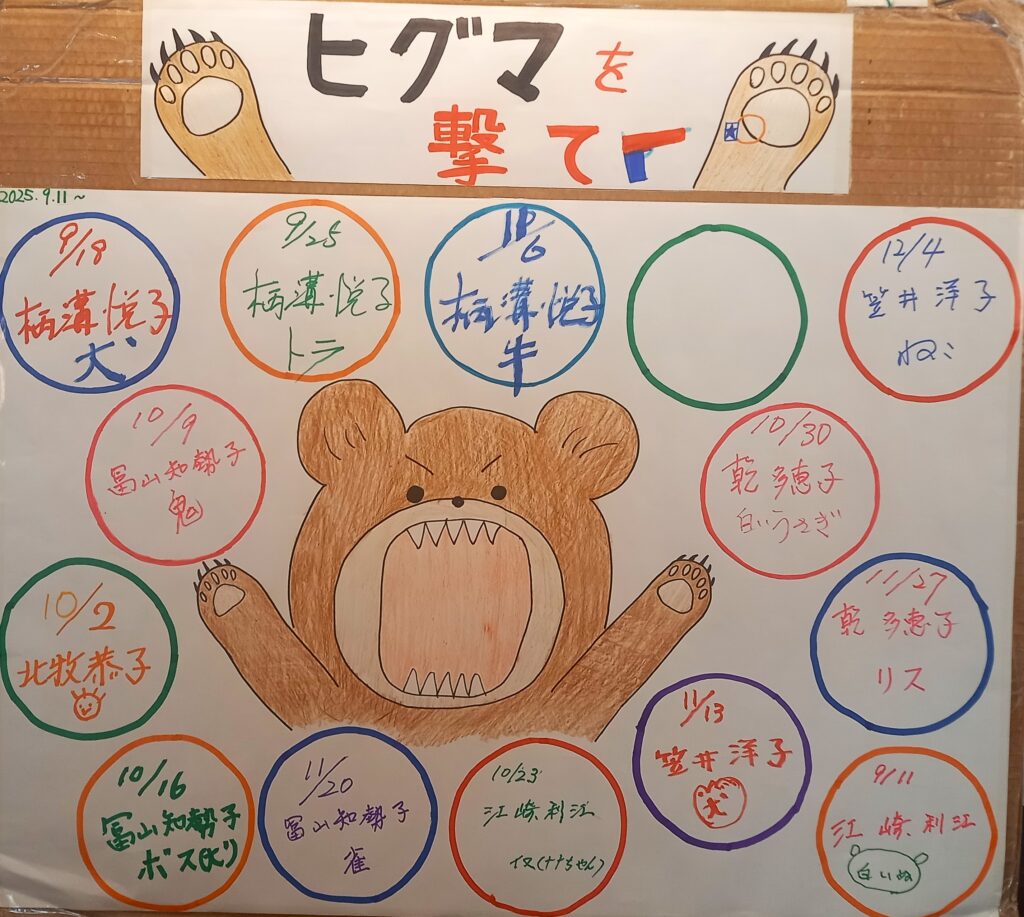 ヒグマを
撃て
2025.9.11~
9/18
柄溝悦子
犬
9/25
柄溝悦子
トラ
柄溝悦子
牛
12/4
笠井洋子
ねこ
10/9
冨山知勢子
鬼
10/30
乾多恵子
白いうさぎ
10/2
北牧恭子
11/27
乾多恵子
リス
10/16
冨山知勢子
ボス
11/20
冨山知勢子
雀
10/23
江崎利江
イヌ(ナナちゃん)
11/13
笠井洋子
犬
9/11
江崎利江
白いぬ